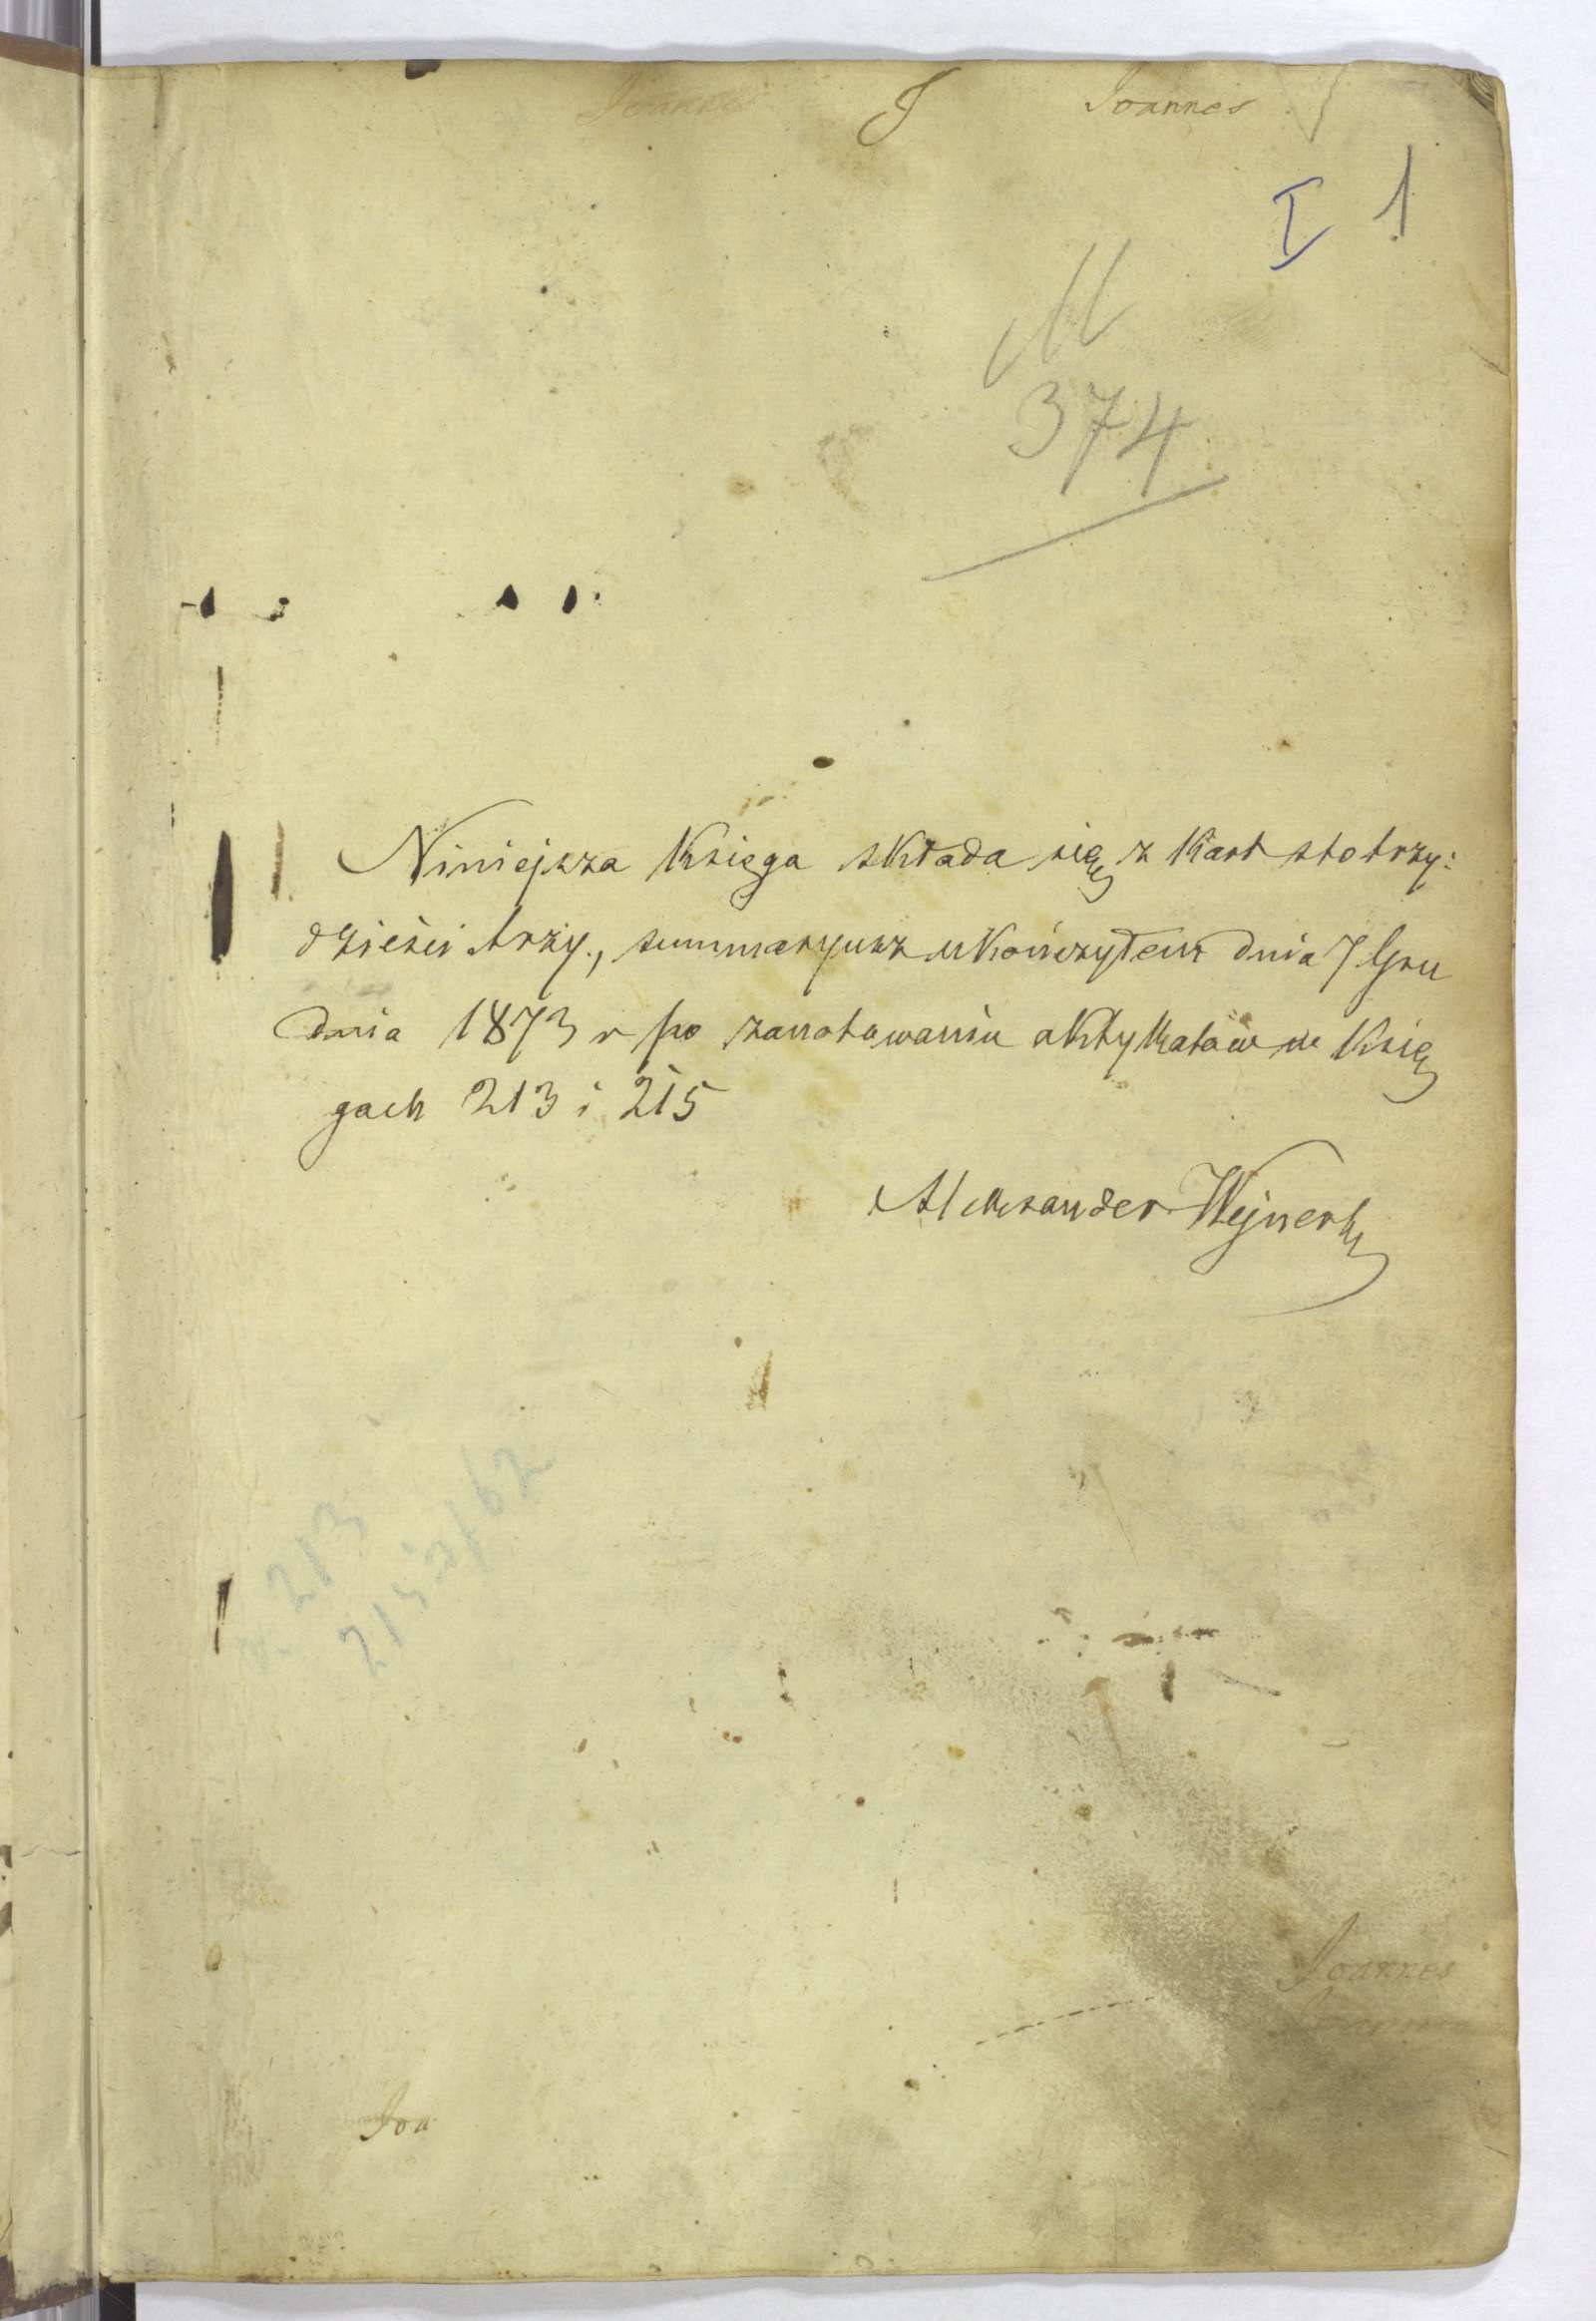 Joannes J Joannes
I 1
M
374
Niniejsza Księga składa się z Kart sto trzy:
dzieści trzy, summaryusz ukończyłem dnia 7 Gru
dnia 1873 r po zanotowaniu aktykatów w Księ
gach 213 i 215
Aleksander Wejnert
213
Joannes
Joa